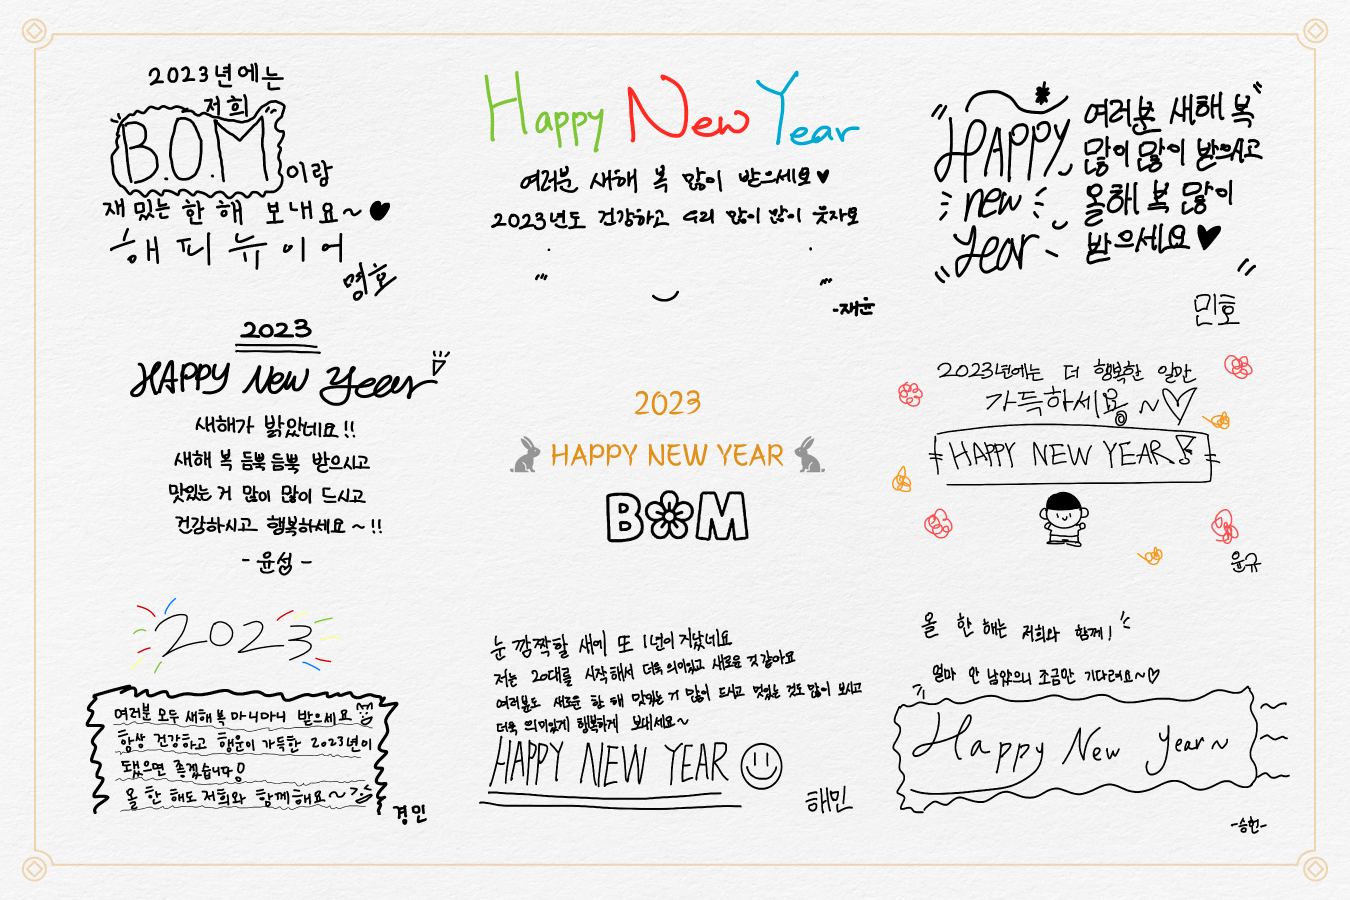 2023년에는
저희
B.O.M 이랑
재밌는 한 해 보내요~♥
해피뉴이어
명호
Happy New Year
여러분 새해 복 많이 받으세요♥
2023년도 건강하고 우리 많이 많이 웃자요
-재윤
"HAPPY
new
year
여러분 새해 복"
많이 많이 받으시고
올해 복 많이
받으세요♥
민호
2023
HAPPY New Year
새해가 밝았네요!!
새해 복 듬뿍듬뿍 받으시고
맛있는 거 많이 많이 드시고
건강하시고 행복하세요~!!
-윤섭-
2023
HAPPY NEW YEAR
BOM
2023년에는 더 행복한 일만
가득하세요~♡
HAPPY NEW YEAR
윤규
2023
여러분 모두 새해 복 마니마니 받으세요
항상 건강하고 행운이 가득한 2023년이
됐으면 좋겠습니다!
올 한 해도 저희와 함께해요~
경민
눈 깜짝할 새에 또 1년이 지났네요
저는 20대를 시작해서 더욱 의미있고 새로운 것 같아요
여러분도 새로운 한 해 맛있는 거 많이 드시고 멋있는 것도 많이 보시고
더욱 의미있게 행복하게 보내세요~
HAPPY NEW YEAR
해민
올 한 해는 저희와 함께!
얼마 안 남았으니 조금만 기다려요~♡
Happy New Year~
-승헌-